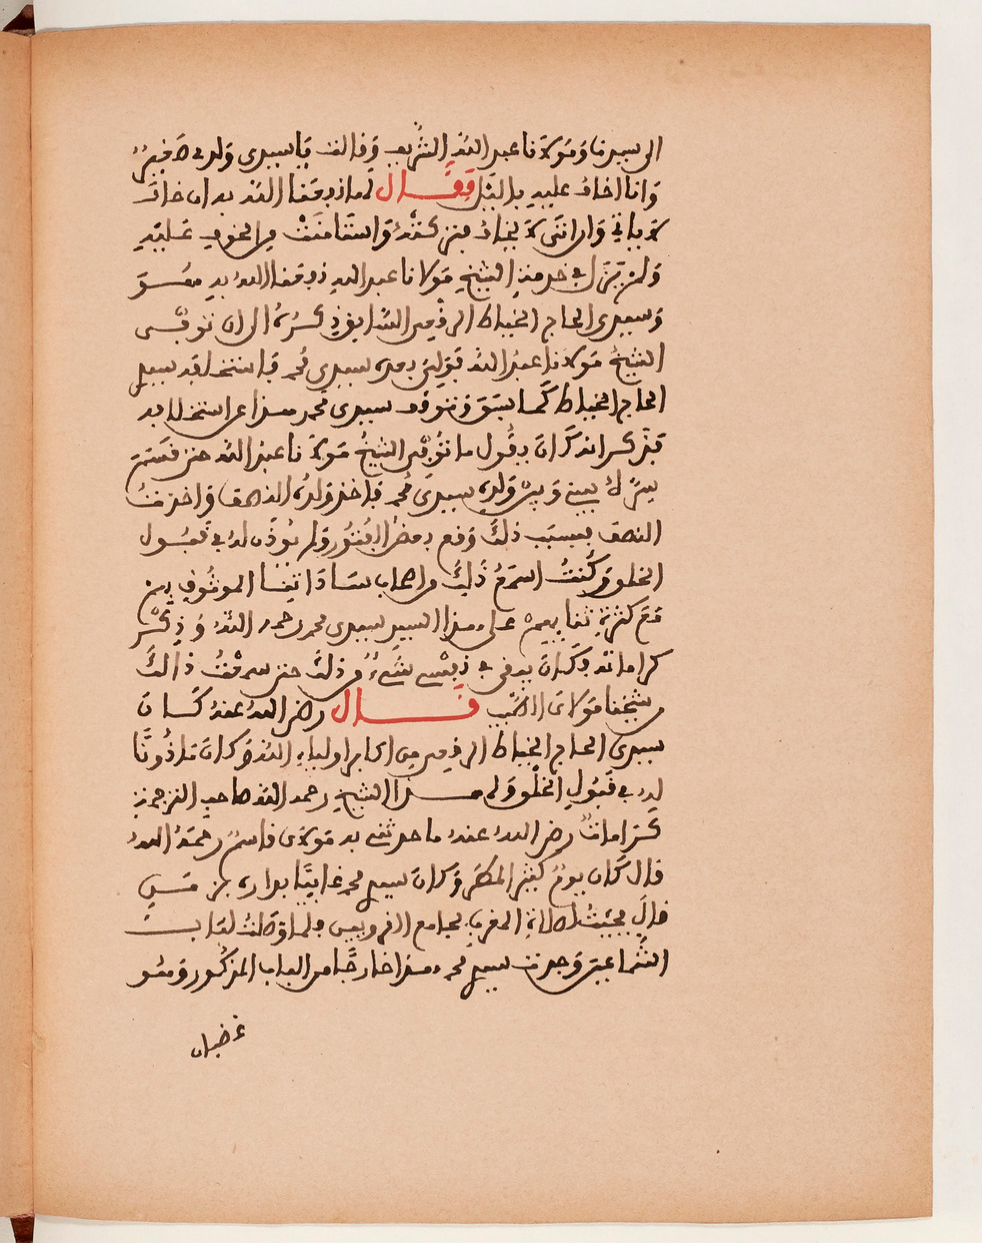 الى سيدنا ومولانا عبد الله الشريف وقالت يا سيدي ولدي صغير
وانا اخاف عليه بالليل فقال لها نفعنا الله به ان خاف
لا ياتي وان اتى لا يخاف فتركته واستامنت من الخوف عليه
ولم يزل في خدمة الشيخ مولانا عبد الله نفعنا الله به هو
وسيدي الحاج الخياط الرفعي السابق ذكره الى ان توفي
الشيخ مولانا عبد الله فولي بعده سيدي محمد فاستخلفه سيدي
الحاج الخياط كما سبق وتوفي سيدي محمد هذا عن استخلافه
فذكر انه كان يقول ما توفي الشيخ مولانا عبد الله حتى قسم
بيني وبين ولده سيدي محمد فاخذ ولده النصف واخذت
النصف بسبب ذلك وقع بعض الفتور ولم يوذن له في قبول
الخلق وكنت اسمع ذلك من اصحاب ساداتنا الموثوق بهم
مع كثرة ثنايهم على هذا السيد سيدي محمد رحمه الله وذكر
كراماته فكان يبقى في نفسي شيء من ذلك حتى سمعت ذالك
من شيخنا مولاي الطيب قال رضي الله عنه كان
سيدي الحاج الخياط الرفعي من اكابر اولياء الله وكان ماذونا
له في قبول الخلق ولهذا الشيخ رحمه الله صاحب الترجمة
كرامات رضي الله عنه ما حدثني به مولاي قاسم رحمة الله
قال كان يوم كثير المطر وكان سيدي محمد غايبا بداره
قال فجيت لصلاة المغرب بجامع القرويين فلما وصلت لباب
الشماعين وجدت سيدي محمد هذا خارجا من الباب المذكور وهو
غضبان